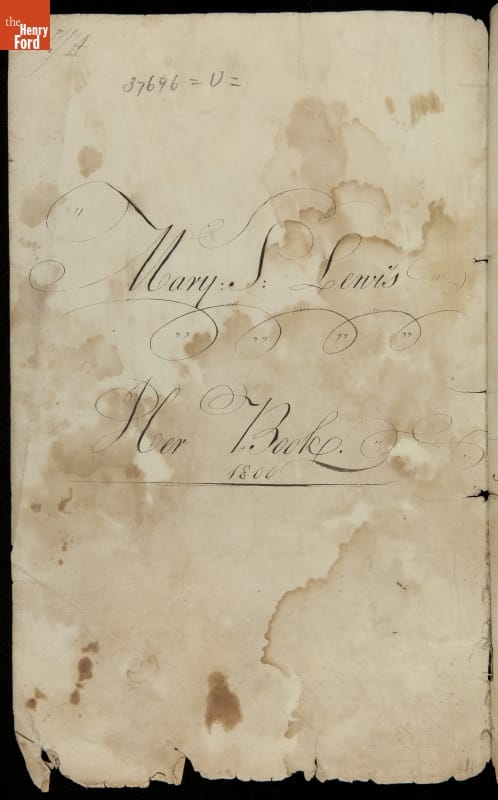 the
Henry
Ford
37696 = U =
Mary: S: Lewis
Her Book.
1800